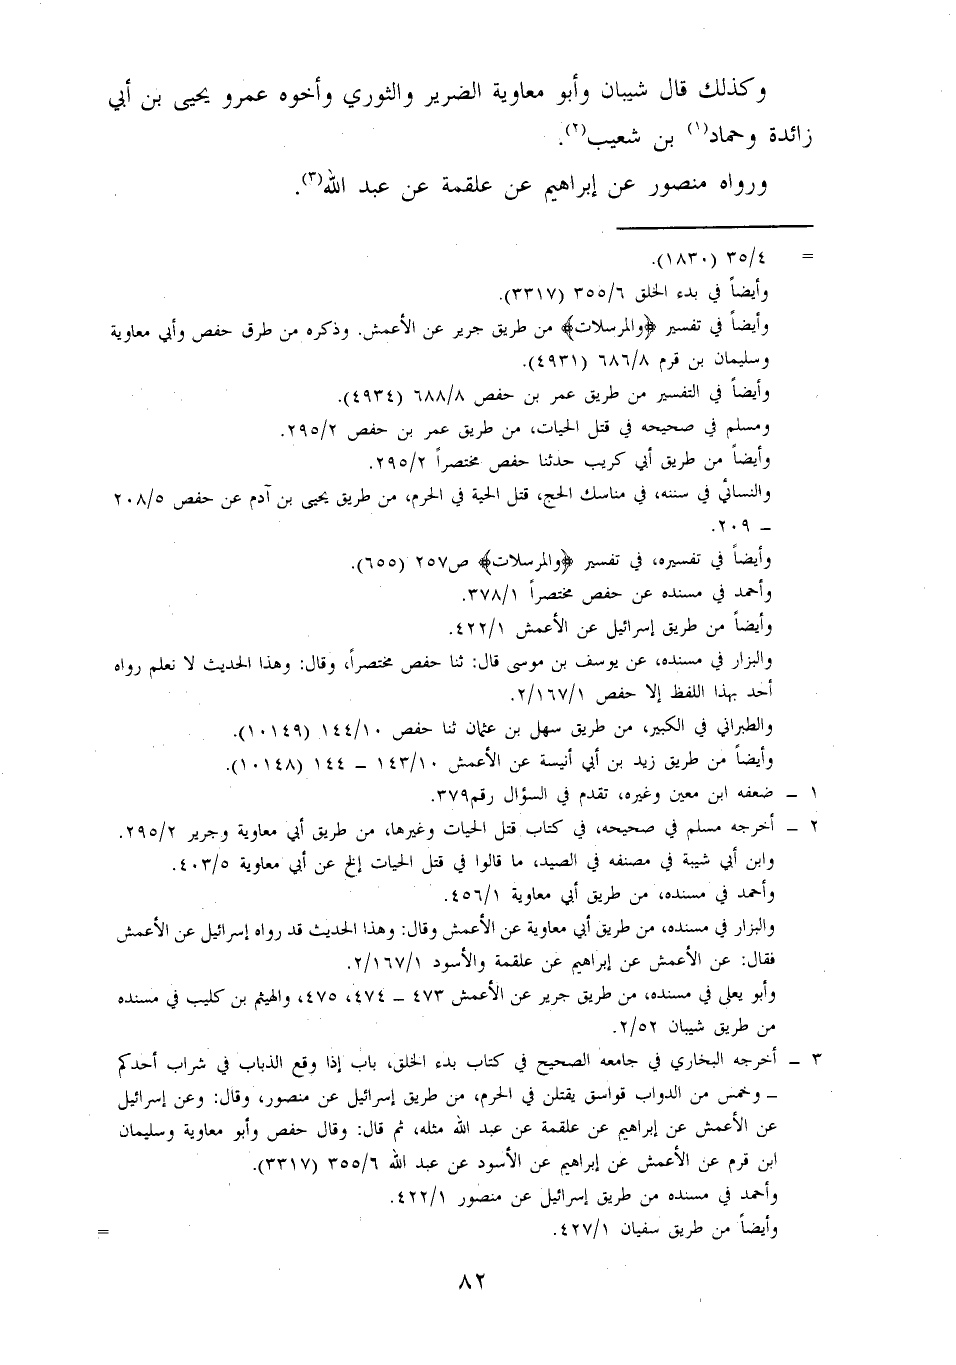 وكذلك قال شيبان وأبو معاوية الضرير والثوري وأخوه عمرو يحيى بن أبي
زائدة وحماد(١) بن شعيب(٢).
ورواه منصور عن إبراهيم عن علقمة عن عبد الله(٣).
= ٣٥/٤ (١٨٣٠).
وأيضاً في بدء الخلق ٣٥٥/٦ (٣٣١٧).
وأيضاً في تفسير ﴿والمرسلات﴾ من طريق جرير عن الأعمش. وذكره من طرق حفص وأبي معاوية
وسليمان بن قرم ٦٨٦/٨ (٤٩٣١).
وأيضاً في التفسير من طريق عمر بن حفص ٦٨٨/٨ (٤٩٣٤).
ومسلم في صحيحه في قتل الحيات، من طريق عمر بن حفص ٢٩٥/٢.
وأيضاً من طريق أبي كريب حدثنا حفص مختصراً ٢٩٥/٢.
والنسائي في سننه، في مناسك الحج، قتل الحية في الحرم، من طريق يحيى بن آدم عن حفص ٢٠٨/٥
– ٢٠٩.
وأيضاً في تفسيره، في تفسير ﴿والمرسلات﴾ ص٢٥٧ (٦٥٥).
وأحمد في مسنده عن حفص مختصراً ٣٧٨/١.
وأيضاً من طريق إسرائيل عن الأعمش ٤٢٢/١.
والبزار في مسنده، عن يوسف بن موسى قال: ثنا حفص مختصراً، وقال: وهذا الحديث لا نعلم رواه
أحد بهذا اللفظ إلا حفص ٢/١٦٧/١.
والطبراني في الكبير، من طريق سهل بن عثمان ثنا حفص ١٤٤/١٠ (١٠١٤٩).
وأيضاً من طريق زيد بن أبي أنيسة عن الأعمش ١٤٣/١٠ – ١٤٤ (١٠١٤٨).
١ – ضعفه ابن معين وغيره، تقدم في السؤال رقم٣٧٩.
٢ – أخرجه مسلم في صحيحه، في كتاب قتل الحيات وغيرها، من طريق أبي معاوية وجرير ٢٩٥/٢.
وابن أبي شيبة في مصنفه في الصيد، ما قالوا في قتل الحيات إلخ عن أبي معاوية ٤٠٣/٥.
وأحمد في مسنده، من طريق أبي معاوية ٤٥٦/١.
والبزار في مسنده، من طريق أبي معاوية عن الأعمش وقال: وهذا الحديث قد رواه إسرائيل عن الأعمش
فقال: عن الأعمش عن إبراهيم عن علقمة والأسود ٢/١٦٧/١.
وأبو يعلى في مسنده، من طريق جرير عن الأعمش ٤٧٣ – ٤٧٤، ٤٧٥، والهيثم بن كليب في مسنده
من طريق شيبان ٢/٥٢.
٣ – أخرجه البخاري في جامعه الصحيح في كتاب بدء الخلق، باب إذا وقع الذباب في شراب أحدكم
– وخمس من الدواب فواسق يقتلن في الحرم، من طريق إسرائيل عن منصور، وقال: وعن إسرائيل
عن الأعمش عن إبراهيم عن علقمة عن عبد الله مثله، ثم قال: وقال حفص وأبو معاوية وسليمان
ابن قرم عن الأعمش عن إبراهيم عن الأسود عن عبد الله ٣٥٥/٦ (٣٣١٧).
وأحمد في مسنده من طريق إسرائيل عن منصور ٤٢٢/١.
وأيضاً من طريق سفيان ٤٢٧/١. =
٨٢